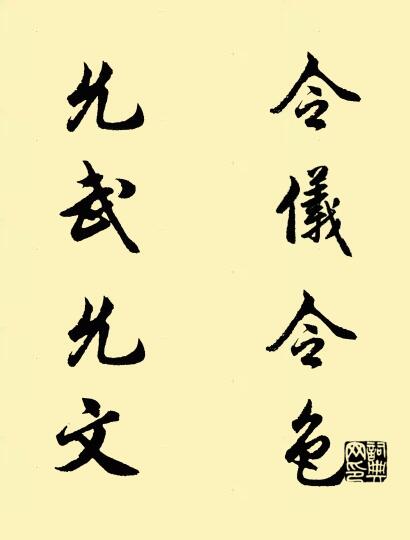 令儀令色
允武允文
詞典网印